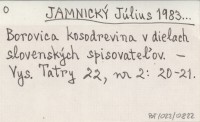 O
JAMNICKÝ Július 1983...
Borovica kosodrevina v dielach
slovenských spisovateľov. –
Vys. Tatry 22, nr 2: 20-21.